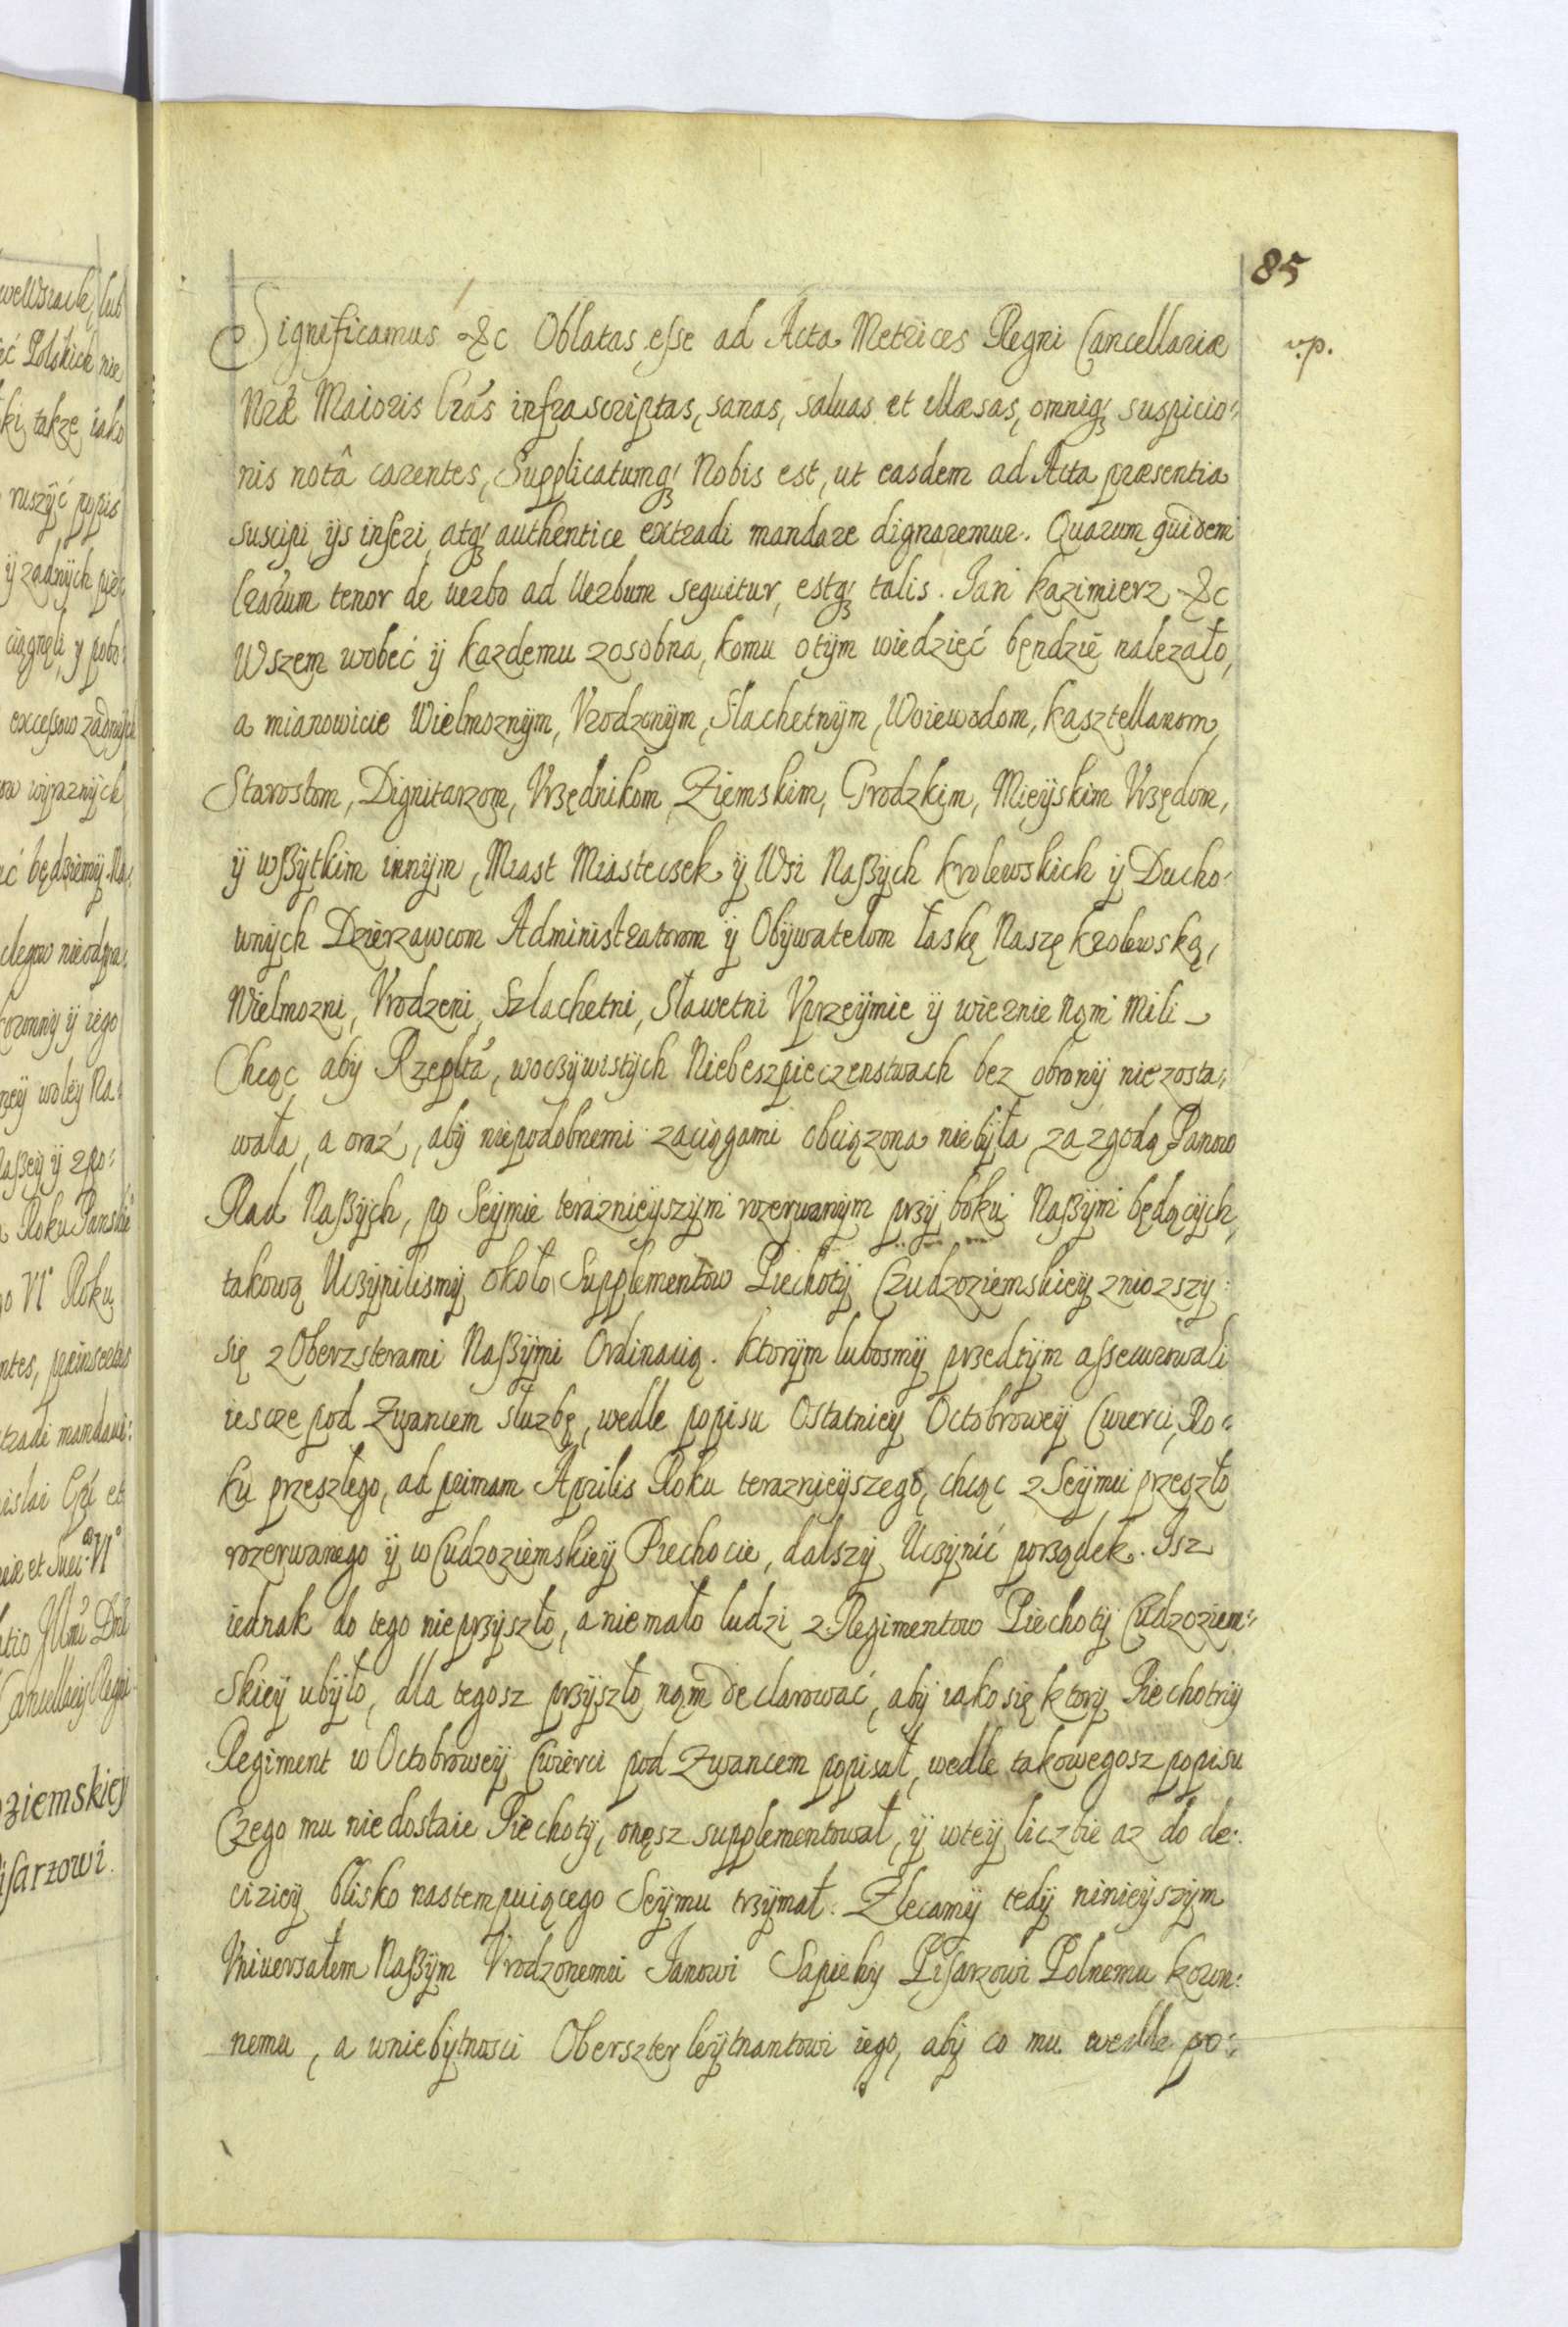 85
Significamus &c Oblatas esse ad Acta Metrices Regni Cancellariæ v.p.
Nræ Maioris Lrás infrascriptas, sanas, saluas et illæsas, omniq́ʒ suspicio:
nis notâ carentes, Supplicatumq́ʒ Nobis est, ut easdem ad Acta præsentia
suscipi ijs inseri, atq́ʒ authentice extradi mandare dignaremur. Quarum quidem
Lrarum tenor de uerbo ad Verbum sequitur, estq́ʒ talis. Jan Kazimierz &c
Wszem wobec ÿ kazdemu zosobna, komu otÿm wiedzięć będzie nalezało,
a mianowicie Wielmoznÿm, Vrodzonÿm, Slachetnÿm, Woiewodom, kasztellanom,
Starostom, Dignitarzom, Vrzędnikom, Ziemskim, Grodzkim, Mieÿskim Vrzędom,
ÿ wßÿtkim innÿm, Miast Miastecsek ÿ Wsi Naßÿch krolewskich ÿ Ducho:
wnÿch Dzierzawcom Administratorom ÿ Obÿwatelom łaskę Naszę krolewską,
Wielmozni, Vrodzeni, Szlachetni, Sławetni Vprzeÿmie ÿ wiernie Nąm Mili
Chcąc abÿ Rzeplta, woczÿwistÿch Niebeszpieczenstwach bez obronÿ nie zosta:
wała, a oraz, abÿ niepodobnemi zaciągami obciązona niebÿła, za zgodą Panow
Rad Naßÿch, po Seÿmie teraznieÿszÿm rozerwanÿm przÿ boku Naßÿm będącÿch,
takową Uczÿnilismÿ około Supplementow Piechotÿ Czudzoziemskieÿ zniozszÿ:
się z Oberzsterami Naßÿmi Ordinacią. ktorÿm lubosmÿ przedtÿm assecurowali
iescze pod Zwancem słuzbę, wedle popisu Ostatnieÿ Octobroweÿ Cwierci, Ro:
ku przeszłego, ad primam Aprilis Roku teraznieÿszego, chcąc z Seÿmu przeszło
rozerwanego ÿ w Cudzoziemskieÿ Piechocie, dalszÿ Uczÿnić porządek. Isz
iednak do tego nieprzÿszło, a niemało ludzi z Regimentow Piechotÿ Cudzoziem:
skieÿ ubÿło, dla tegosz przÿszło nąm declarować, abÿ iako się ktorÿ Piechotnÿ
Regiment w Octobroweÿ Cwierci pod Zwancem popisał, wedle takowegosz popisu
Czego mu niedostaie Piechotÿ, onęsz supplementował, ÿ wteÿ liczbie az do de:
cizieÿ blisko nastempuiącego Seÿmu trzÿmał. Zlecamÿ tedÿ ninieÿszÿm
Vniuersałem Naßÿm Vrodzonemu Janowi Sapieÿ Pisarzowi Polnemu koron:
nemu, a wniebÿtnosci Oberszter leÿtnantowi iego, abÿ co mu wedle po: